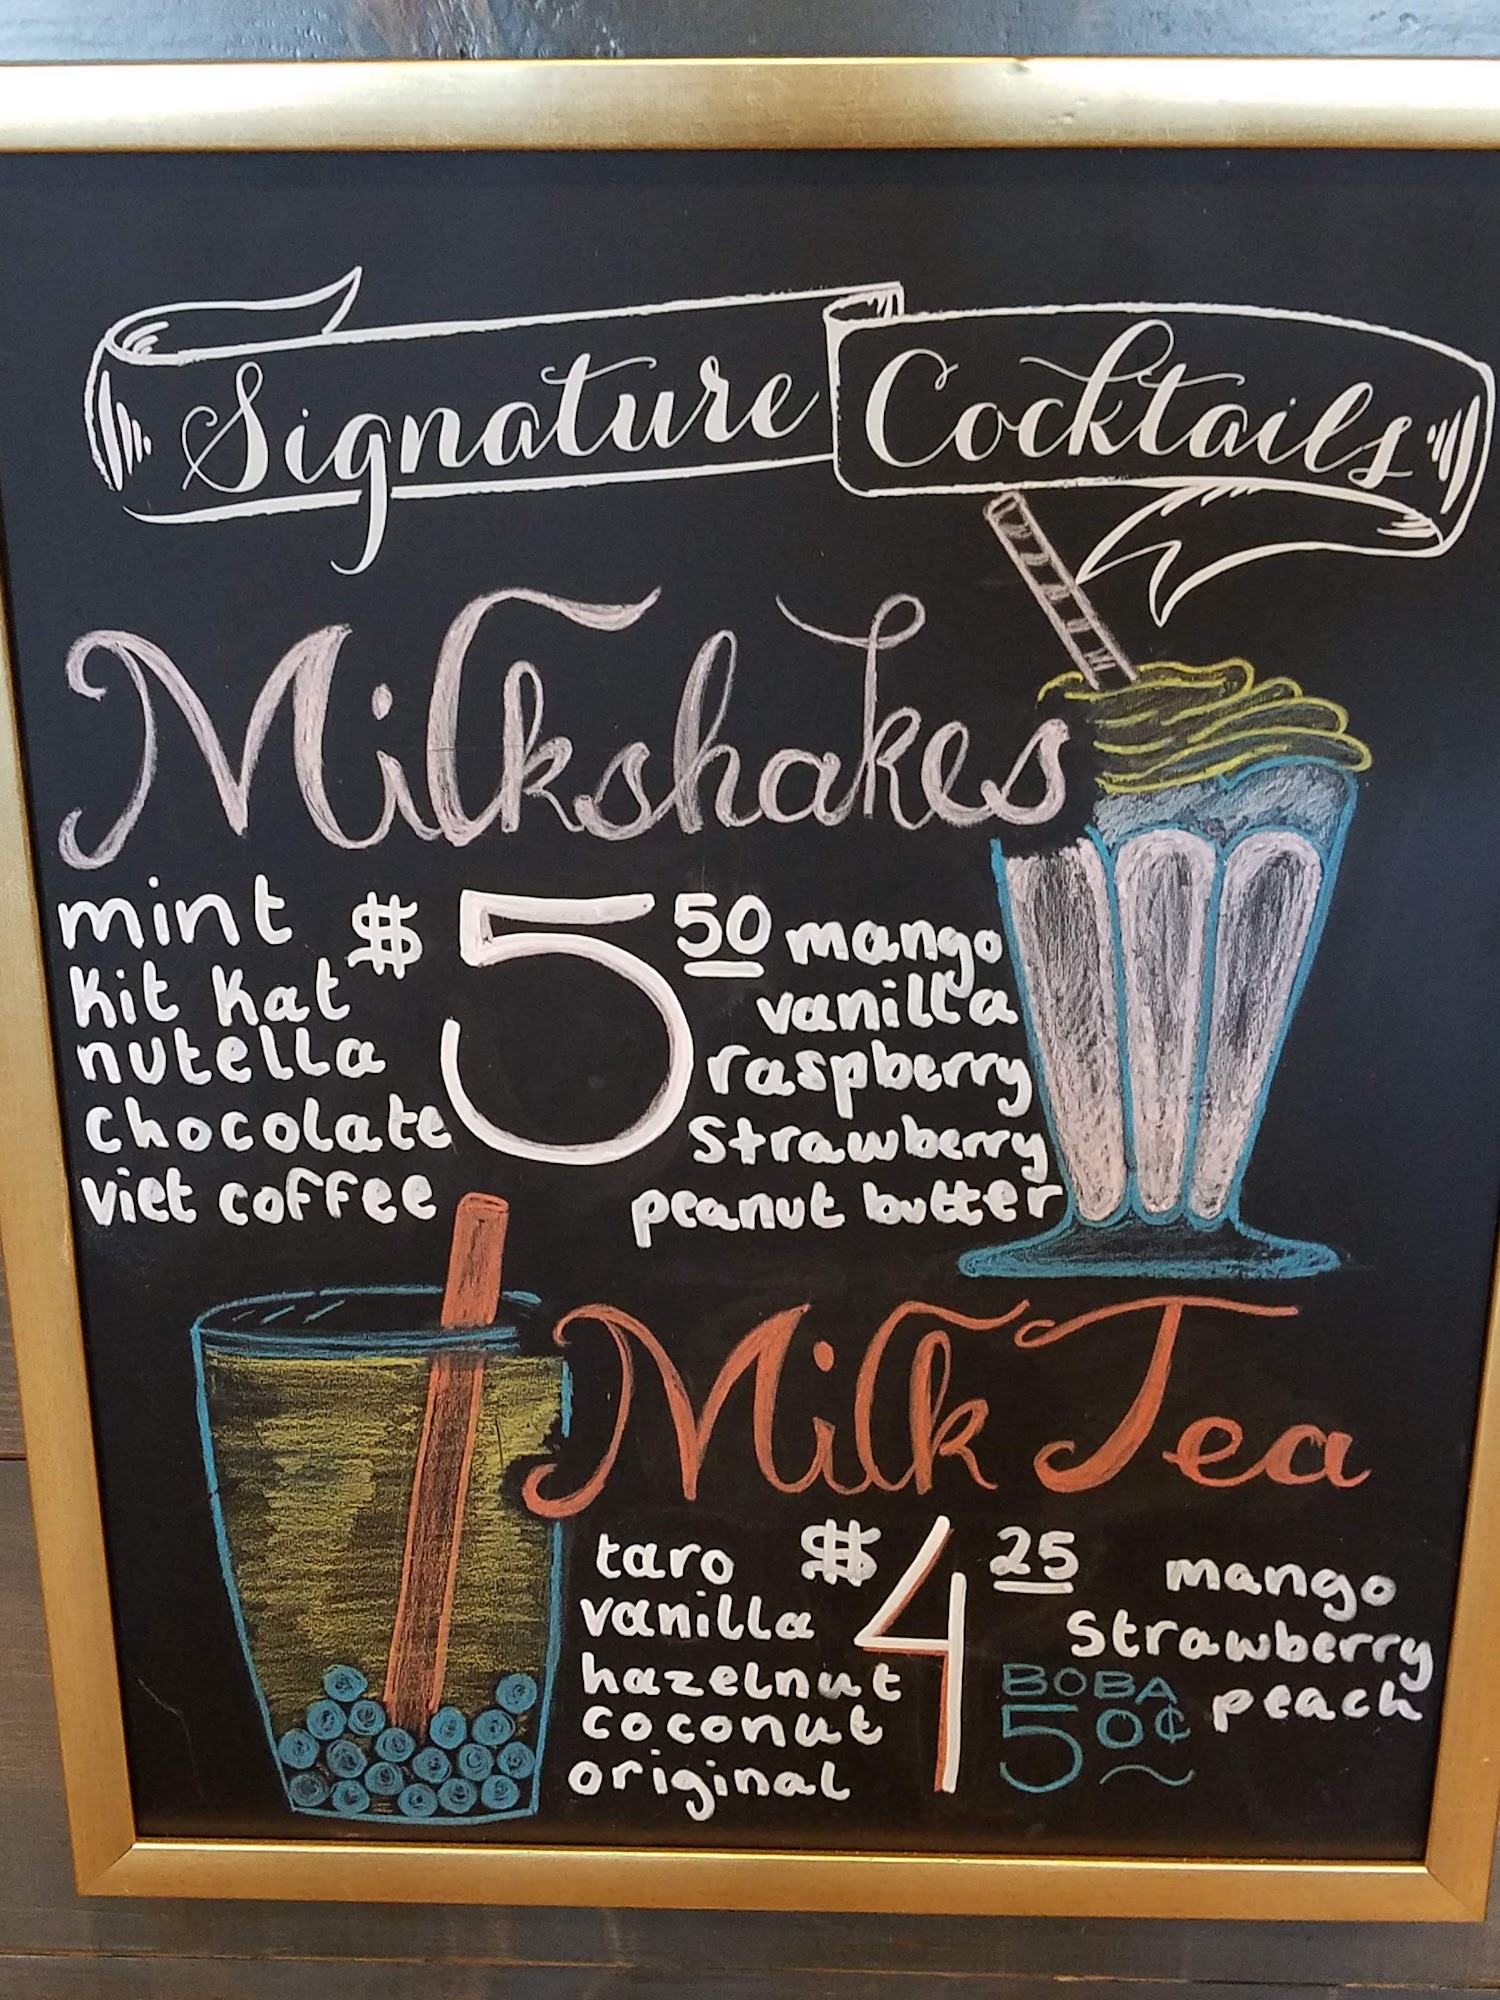 Signature Cocktails
Milkshakes
mint
kit kat
nutella
chocolate
viet coffee
$5 50
mango
vanilla
raspberry
strawberry
peanut butter
Milk Tea
taro
vanilla
hazelnut
coconut
original
$4 25
BOBA
50¢
mango
strawberry
peach